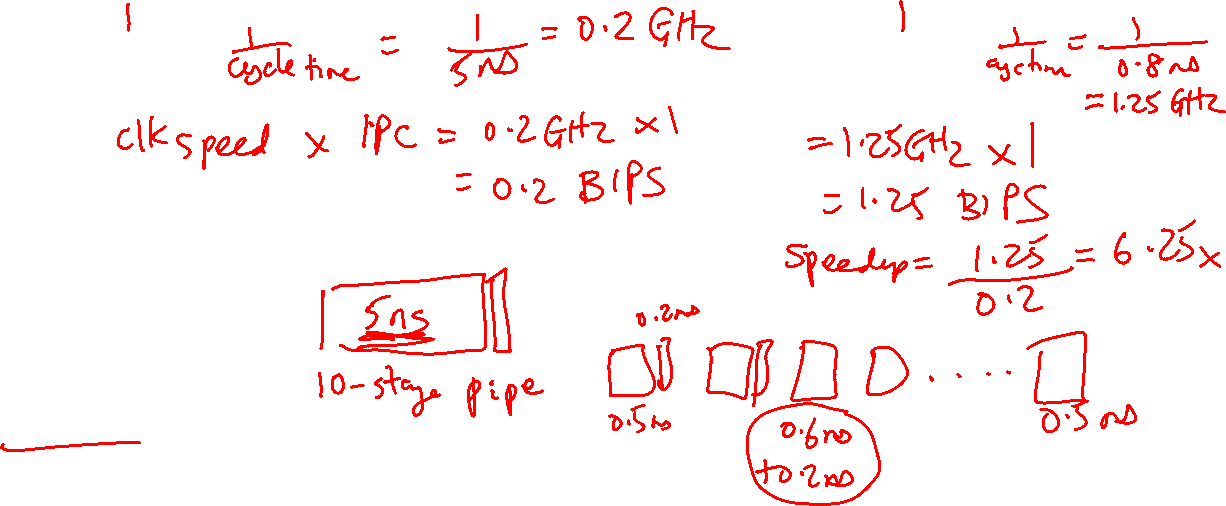 1
1/cycle time = 1/5ns = 0.2 GHz
clk speed x IPC = 0.2 GHz x 1
= 0.2 BIPS
1
1/cyc time = 1/0.8 ns
= 1.25 GHz
= 1.25 GHz x 1
= 1.25 BIPS
Speedup = 1.25/0.2 = 6.25x
5ns
10-stage pipe
0.2ns
0.5ns
0.6ns
+0.2ns
....
0.5 ns